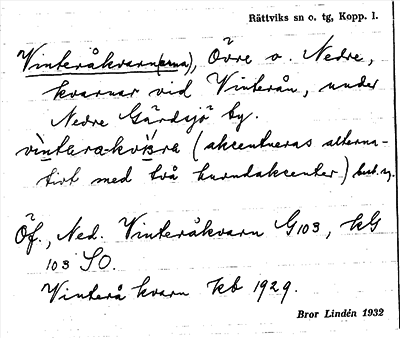 Rättviks sn o. tg, Kopp. l.
Vinteråkvarn(arna), Övre o. Nedre,
kvarnar vid Vinterån, under
Nedre Gärdsjö by.
(aksentueras alterna-
tivt med två huvudaksenter)
Öf., Ned. Vinteråkvarn G103, KG
103 SO.
Vinterå kvarn Kb 1929.
Bror Lindén 1932